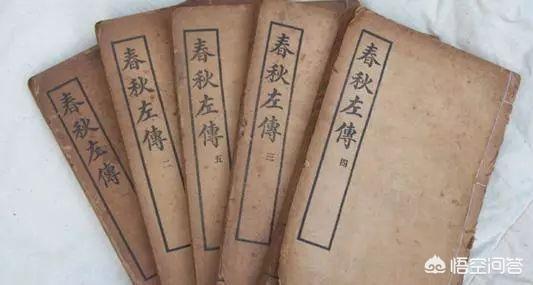 春秋左傳
春秋左傳 二
春秋左傳 五
春秋左傳 三
春秋左傳 四
悟空问答